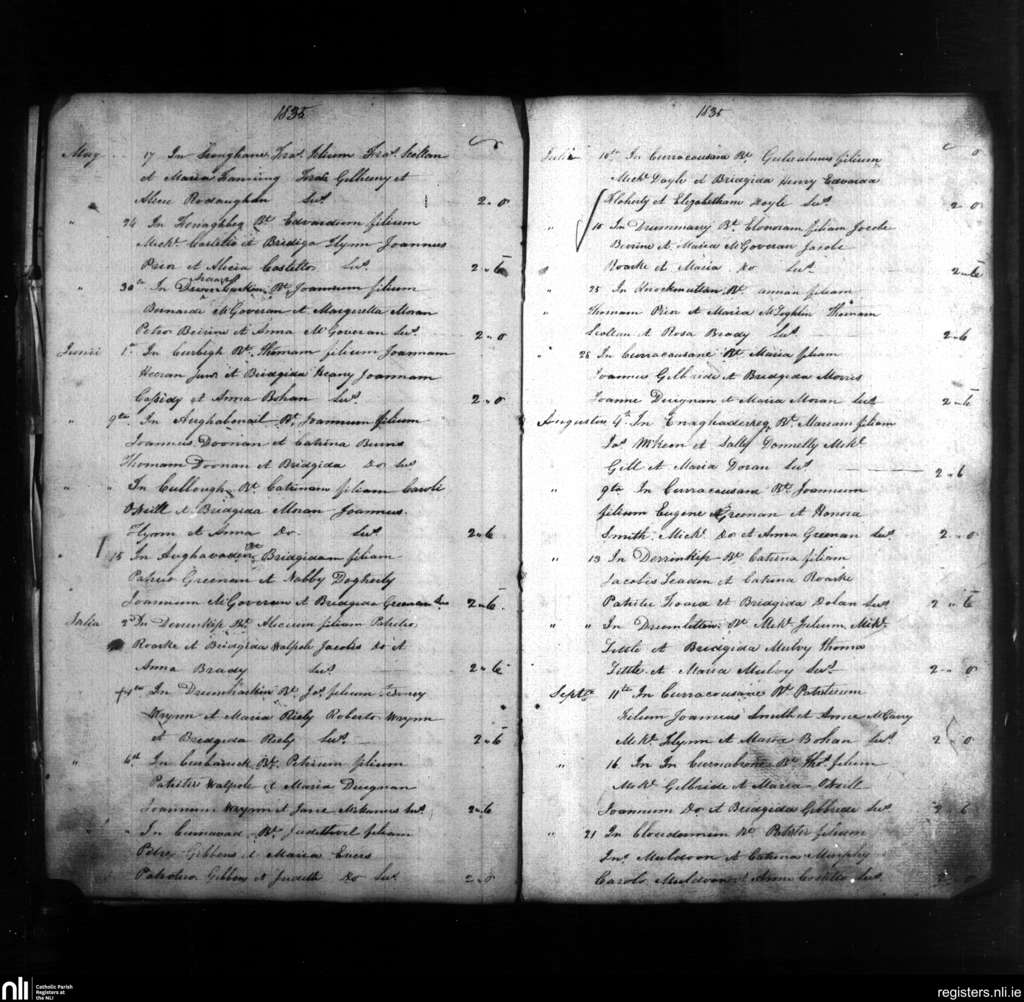 1835
May 17 In Fra.s filium Fra.s Scollan
et Maria Fanning Gilheeny et
Alicia Rodaughan Sus.
2 - 0
" 24 In Bt. Edvardum filium
Mick.l Costello et Bridgida Flynn Joannus
Prior et Alicia Costello Sus.
2 - 6
" 30th In Drumharkin Bt. Joannum filium
Bernarde McGoveran et Margeretta Moran
Petro Beirne et Anna McGoveran Sus.
2 - 0
Junii 1st In Curbegh Bt. Thomam filium Joannam
Heeran Junr et Bridgida Heany Joannam
Cassidy et Anna Bohan Sus.
2 - 0
" 9th In Aughabenail Bt. Joannum filium
Joannus Doonan et Catrina Burns
Thomam Doonan et Bridgida Do Sus
" " In Cullough Bt. Catrinam filiam Caroli
O'Neill et Bridgida Moran Joannus
Flynn et Anna do. Sus.
2 - 6
" 15 In Bridgidam filiam
Patricii Greenan et Nabby Dogherty
Joannum McGoveran et Bridgida Greenan Sus
2 - 6
Julia 2d In Derrinkip Bt. Aliciam filiam Patritii
Roarke et Bridgida Walpole Jacobis do et
Anna Brady Sus.
2 - 6
4th In Drumharkin Bt. Jos. filium
Wrynn et Maria Riely Roberto Wrynn
et Bridgida Riely Sus.
2 - 6
" 6th In Bt. Petrium filium
Patritii Walpole et Maria Duignan
Joannum Wrynn et Jane McManus Sus.
2 - 6
" In Bt. filiam
Gibbons et Maria Evers
Gibbons et Judith do Sus.
2 - 0
1835
Julii 10th In Curracousana Bt. Gulielmus filium
Mick.l Doyle et Bridgida Henry Edvarda
Floherty et Elizabetham Doyle Sus.
2 - 0
" 10 In Drummany Bt. Elenoram filiam Jacobi
Beirne et Maria McGoveran Jacobi
Roarke et Maria do Sus.
2 - 6
" 25 In Knockmullan Bt. annan filiam
" Thomam Prior et Maria McLoghlin Thomam
Scollan et Rosa Brady Sus.
2 - 6
" 28 In Curracousane Bt. Maria filiam
Joannus Gilbride et Bridgida Morris
Joanne Duignan et Maria Moran Sus
2 - 6
Augustus 4th In Enaghaderkeg Bt. Mariam filiam
Jas McKeon et Sally Donnelly Mick.l
Gill et Maria Doran Sus.
2 - 6
" 9th In Curracousane Bt. Joannum
filium Eugene Greenan et Honora
Smith Mick.l do et Anna Greenan Sus.
2 - 0
" 13 In Derrinkip Bt. Catrina filiam
Jacobis Leadon et Catrina Roarke
Patritii et Bridgida Dolan Sus
2 - 6
" " In Drumlettan Bt. Mick.l filium Mick.l
Little et Bridgida Mulvy Thoma
Little et Maria Mulvoy Sus.
2 - 0
Septr 11th In Curracousane Bt. Patritium
filium Joannus Smith et Anne McGarry
Mick.l Flynn et Maria Bohan Sus.
2 - 0
" 16 In In Bt. Thos filium
Mick.l Gilbride et Maria O'Neill
Joannum do et Bridgida Gilbride Sus
2 - 6
" 21 In Bt. Patritii filium
Jno. Muldoon et Catrina Murphy
Carolo Muldoon et Anne Costello Sus.
2 - 0
nli
Catholic Parish
Registers at
the NLI
registers.nli.ie